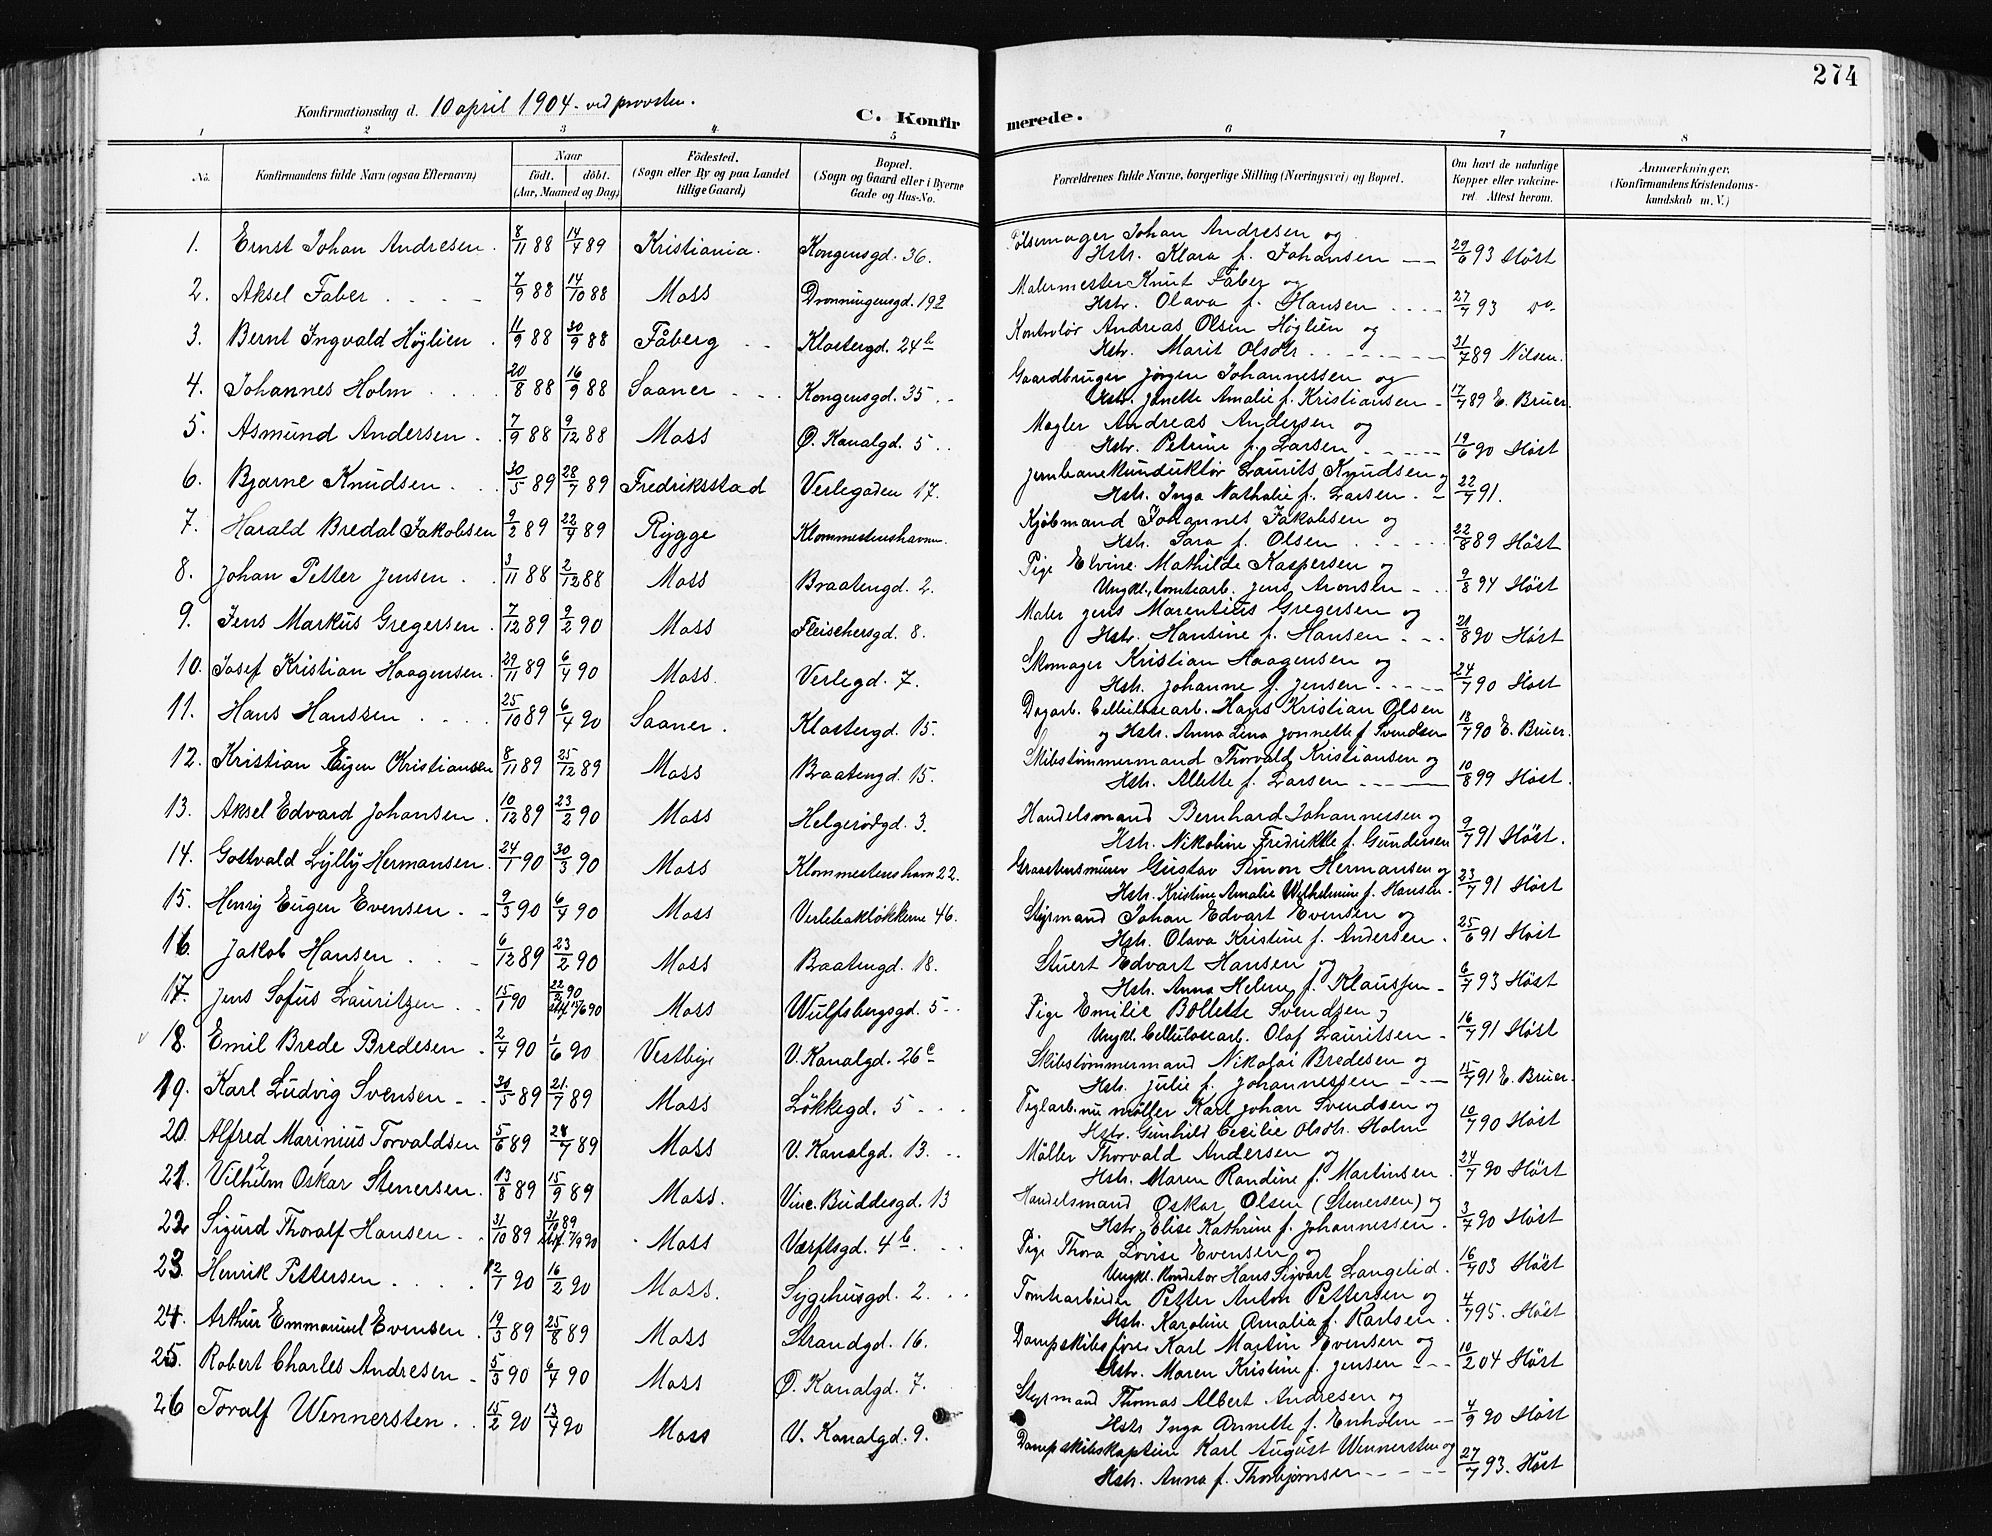 274
Konfirmationsdag d. 10 april 1904. ved provsten.
C. Konfirmerede.
1 2 3 4 5 6 7 8
No. Konfirmandens fulde Navn (ogsaa Efternavn) Naar födt. döbt. (Aar, Maaned og Dag) Födested. (Sogn eller By og paa Landet tillige Gaard) Bopæl. (Sogn og Gaard eller i Byerne Gade og Hus-No. Forældrenes fulde Navne, borgerlige Stilling (Næringsvei) og Bopæl. Om havt de naturlige Kopper eller vakcineret Attest herom. Anmærkninger. (Konfirmandens Kristendomskundskab m. V.)
1. Ernst Johan Andresen. 8/11 88 14/4 89 Kristiania. Kongensgd. 36. Pølsemager Johan Andresen og
Hstr. Klara f. Johansen 29/6 93 Höst
2. Aksel Faber 7/9 88 14/10 88 Moss Dronningensgd. 192 Malermester Knut Faber og
Hstr. Olava f. Hansen 27/7 93 do
3. Bernt Ingvald Höglien 11/9 88 30/9 88 Fåberg Klostergd. 24 b Kontrolör Andreas Olsen Höglien og
Hstr. Marit Olsdtr. 31/7 89 Nilsen.
4. Johannes Holm 20/8 88 16/9 88 Saaner Kongensgd. 35. Gaardbruger Jörgen Johannessen og
Hstr. Janette Amalie f. Kristiansen 17/7 89 E. Bruer.
5. Asmund Andersen 7/9 88 9/12 88 Moss Ø. Kanalgd. 5 Mægler Andreas Andersen og
Hstr. Petrine f. Larsen 19/6 90 Höst
6. Bjarne Knudsen 30/5 89 28/7 89 Fredriksstad Verlegaden 17. Jernbanekunduktör Laurits Knudsen og
Hstr. Inga Nathalie f. Larsen 22/7 91.
7. Harald Bredal Jakobsen 9/2 89 22/4 89 Rygge Klommestenshavnen. Kjöbmand Johannes Jakobsen og
Hstr. Sara f. Olsen 22/8 89 Höst
8. Johan Petter Jensen 3/11 88 2/12 88 Moss Braatengd. 2. Pige Elvine Mathilde Kaspersen og
Ungkl., tomtearb. Jens Aronsen 9/8 94 Höst
9. Jens Markus Gregersen 7/12 89 9/2 90 Moss Fleischersgd. 8. Maler Jens Marentius Gregersen og
Hstr. Hansine f. Hansen 21/8 90 Höst
10. Josef Kristian Haagensen. 29/11 89 6/4 90 Moss. Verlegd. 7. Skomager Kristian Haagensen og
Hstr. Johanne f. Jensen 24/7 90 Höst
11. Hans Hanssen 25/10 89 6/4 90 Saaner. Klostergd. 15. Dagarb. Cellulosearb. Hans Kristian Olsen
og Hstr. Anna Lina Jonnette f. Svendsen 18/7 90 E. Bruer.
12. Kristian Eigen Kristiansen 8/11 89 25/12 89 Moss Braatengd. 15. Skibstömmermand Thorvald Kristiansen og
Hstr. Alette f. Larsen 10/8 99 Höst.
13. Aksel Edvard Johansen 10/12 89 23/2 90 Moss Helgerödgd. 3. Handelsmand Bernhard Johannessen og
Hstr. Nikoline Fredrikke f. Gundersen 9/7 91 Höst.
14. Gottvald Lylly Hermansen. 24/1 90 30/3 90 Moss Klommestenshavn 22. Graastensmurer Gustav Simon Hermansen og
Hstr. Kristine Amalie Wilhelmine f. Hansen. 23/7 91 Höst
15. Henry Eugen Evensen 9/3 90 6/4 90 Moss Verlebakløkkerne 46. Styrmand Johan Edvart Evensen og
Hstr. Olava Kristine f. Andersen. 25/6 91 Höst
16. Jakob Hansen 6/12 89 23/2 90 Moss Braatengd. 18. Stuert Edvart Hansen og
Hstr. Anna Helene f. Klaussen 6/7 93 Höst
17. Jens Sofus Lauritzen 15/1 90 22/2 90 stf. 15/6 90 Moss Wulfsbergsgd. 5 Pige Emilie Bollette Svendsen og
Ungkl. Cellulosearb. Olaf Lauritsen 16/7 91 Höst
18. Emil Brede Bredesen 2/4 90 1/6 90 Vestby V. Kanalgd. 26 c Skibstömmermand Nikolai Bredesen og
Hstr. Julie f. Johannessen 15/7 91 E. Bruer.
19. Karl Ludvig Svensen 30/5 89 21/7 89 Moss Løkkegd. 5 Teglarb. nu möller Karl Johan Svendsen og
Hstr. Gunhild Cecilie Olsdtr. Holm 10/7 90 Höst
20. Alfred Marinius Torvaldsen 5/6 89 28/7 89 Moss V. Kanalgd. 13. Möller Thorvald Andersen og
Hstr. Maren Randine f. Martinsen. 24/7 90 Höst
21. Vilhelm Oskar Stenersen. 13/8 89 15/9 89 Moss. Vinc. Buddesgd. 13 Handelsmand Oskar Olsen (Stenersen) og
Hstr. Elise Kathrine f. Johannessen. 3/7 90 Höst
22. Sigurd Thoralf Hansen 31/10 89 31/10 89 stf. 7/9 90 Moss Værftsgd. 4 b. Pige Thora Lovise Evensen og
Ungkl. Konditor Hans Sigvart Langelid. 16/7 03 Höst
23. Henrik Pettersen 12/1 90 16/2 90 Moss. Sygehusgd. 2. Tomtearbeider Petter Anton Pettersen og
Hstr. Karoline Amalia f. Karlsen. 4/7 95. Höst
24. Arthur Emmanuel Evensen 19/3 89 25/8 89 Moss Strandgd. 16. Dampskibsförer Karl Martin Evensen og
Hstr. Maren Kristine f. Jensen 10/2 04 Höst
25. Robert Charles Andresen 5/3 90 6/4 90 Moss Ø. Kanalgd. 7. Styrmand Thomas Albert Andresen og
Hstr. Inga Annette f. Enholm 4/9 90 Höst
26 Toralf Wennersten 15/2 90 13/4 90 Moss V. Kanalgd. 9. Dampskibskaptein Karl August Wennersten og
Hstr. Anna f. Thorbjørnsen 27/7 93. Höst